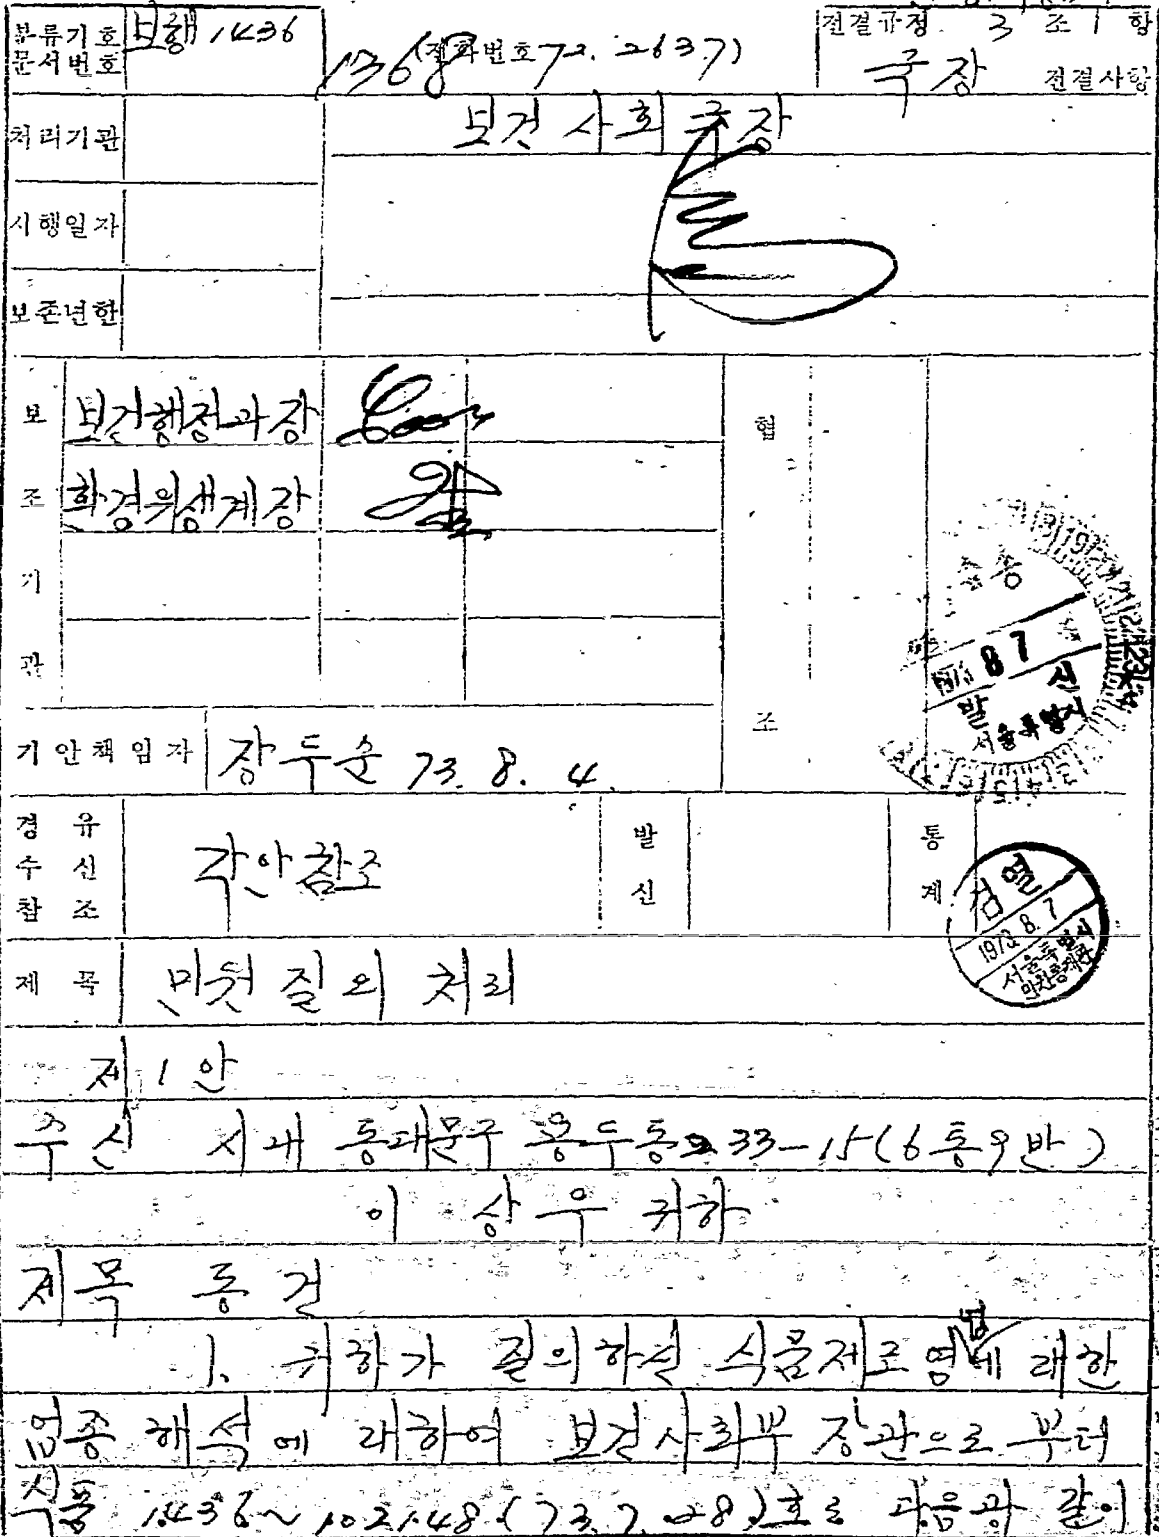 분류기호 문서번호 보행 1436
1368 (전화번호 72. 2637)
전결규정 3 조 1 항
국장 전결사항
처리기관
보건사회국장
시행일자
보존년한
보조기관
보건행정과장
환경위생계장
협조
기안책임자 장두순 73. 8. 4
경유 수신 참조 각안참조
발신
통계
발신
1973 8 7
서울특별시
검열
1973. 8. 7
서울특별시
제목 민원 질의 처리
제 1 안
수신 시내 동대문구 용두동 233-15 (6통 9반)
이 상 우 귀하
제목 동 건
1. 귀하가 질의하신 식품제조업에 대한
업종 해석에 대하여 보건사회부 장관으로 부터
식품 1436~102148 (73. 7. 28)호로 다음과 같이